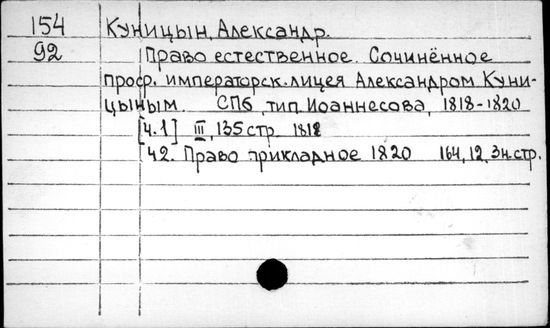 154 Куницын, Александр.
92 Право естественное. Сочинённое
проф. императорск. лицея Александром Куни-
цыным. СПб, тип. Иоаннесова, 1818-1820
[ч.1] III, 135 стр. 1818
ч2. Право прикладное 1820 164, 12, 3 н. стр.